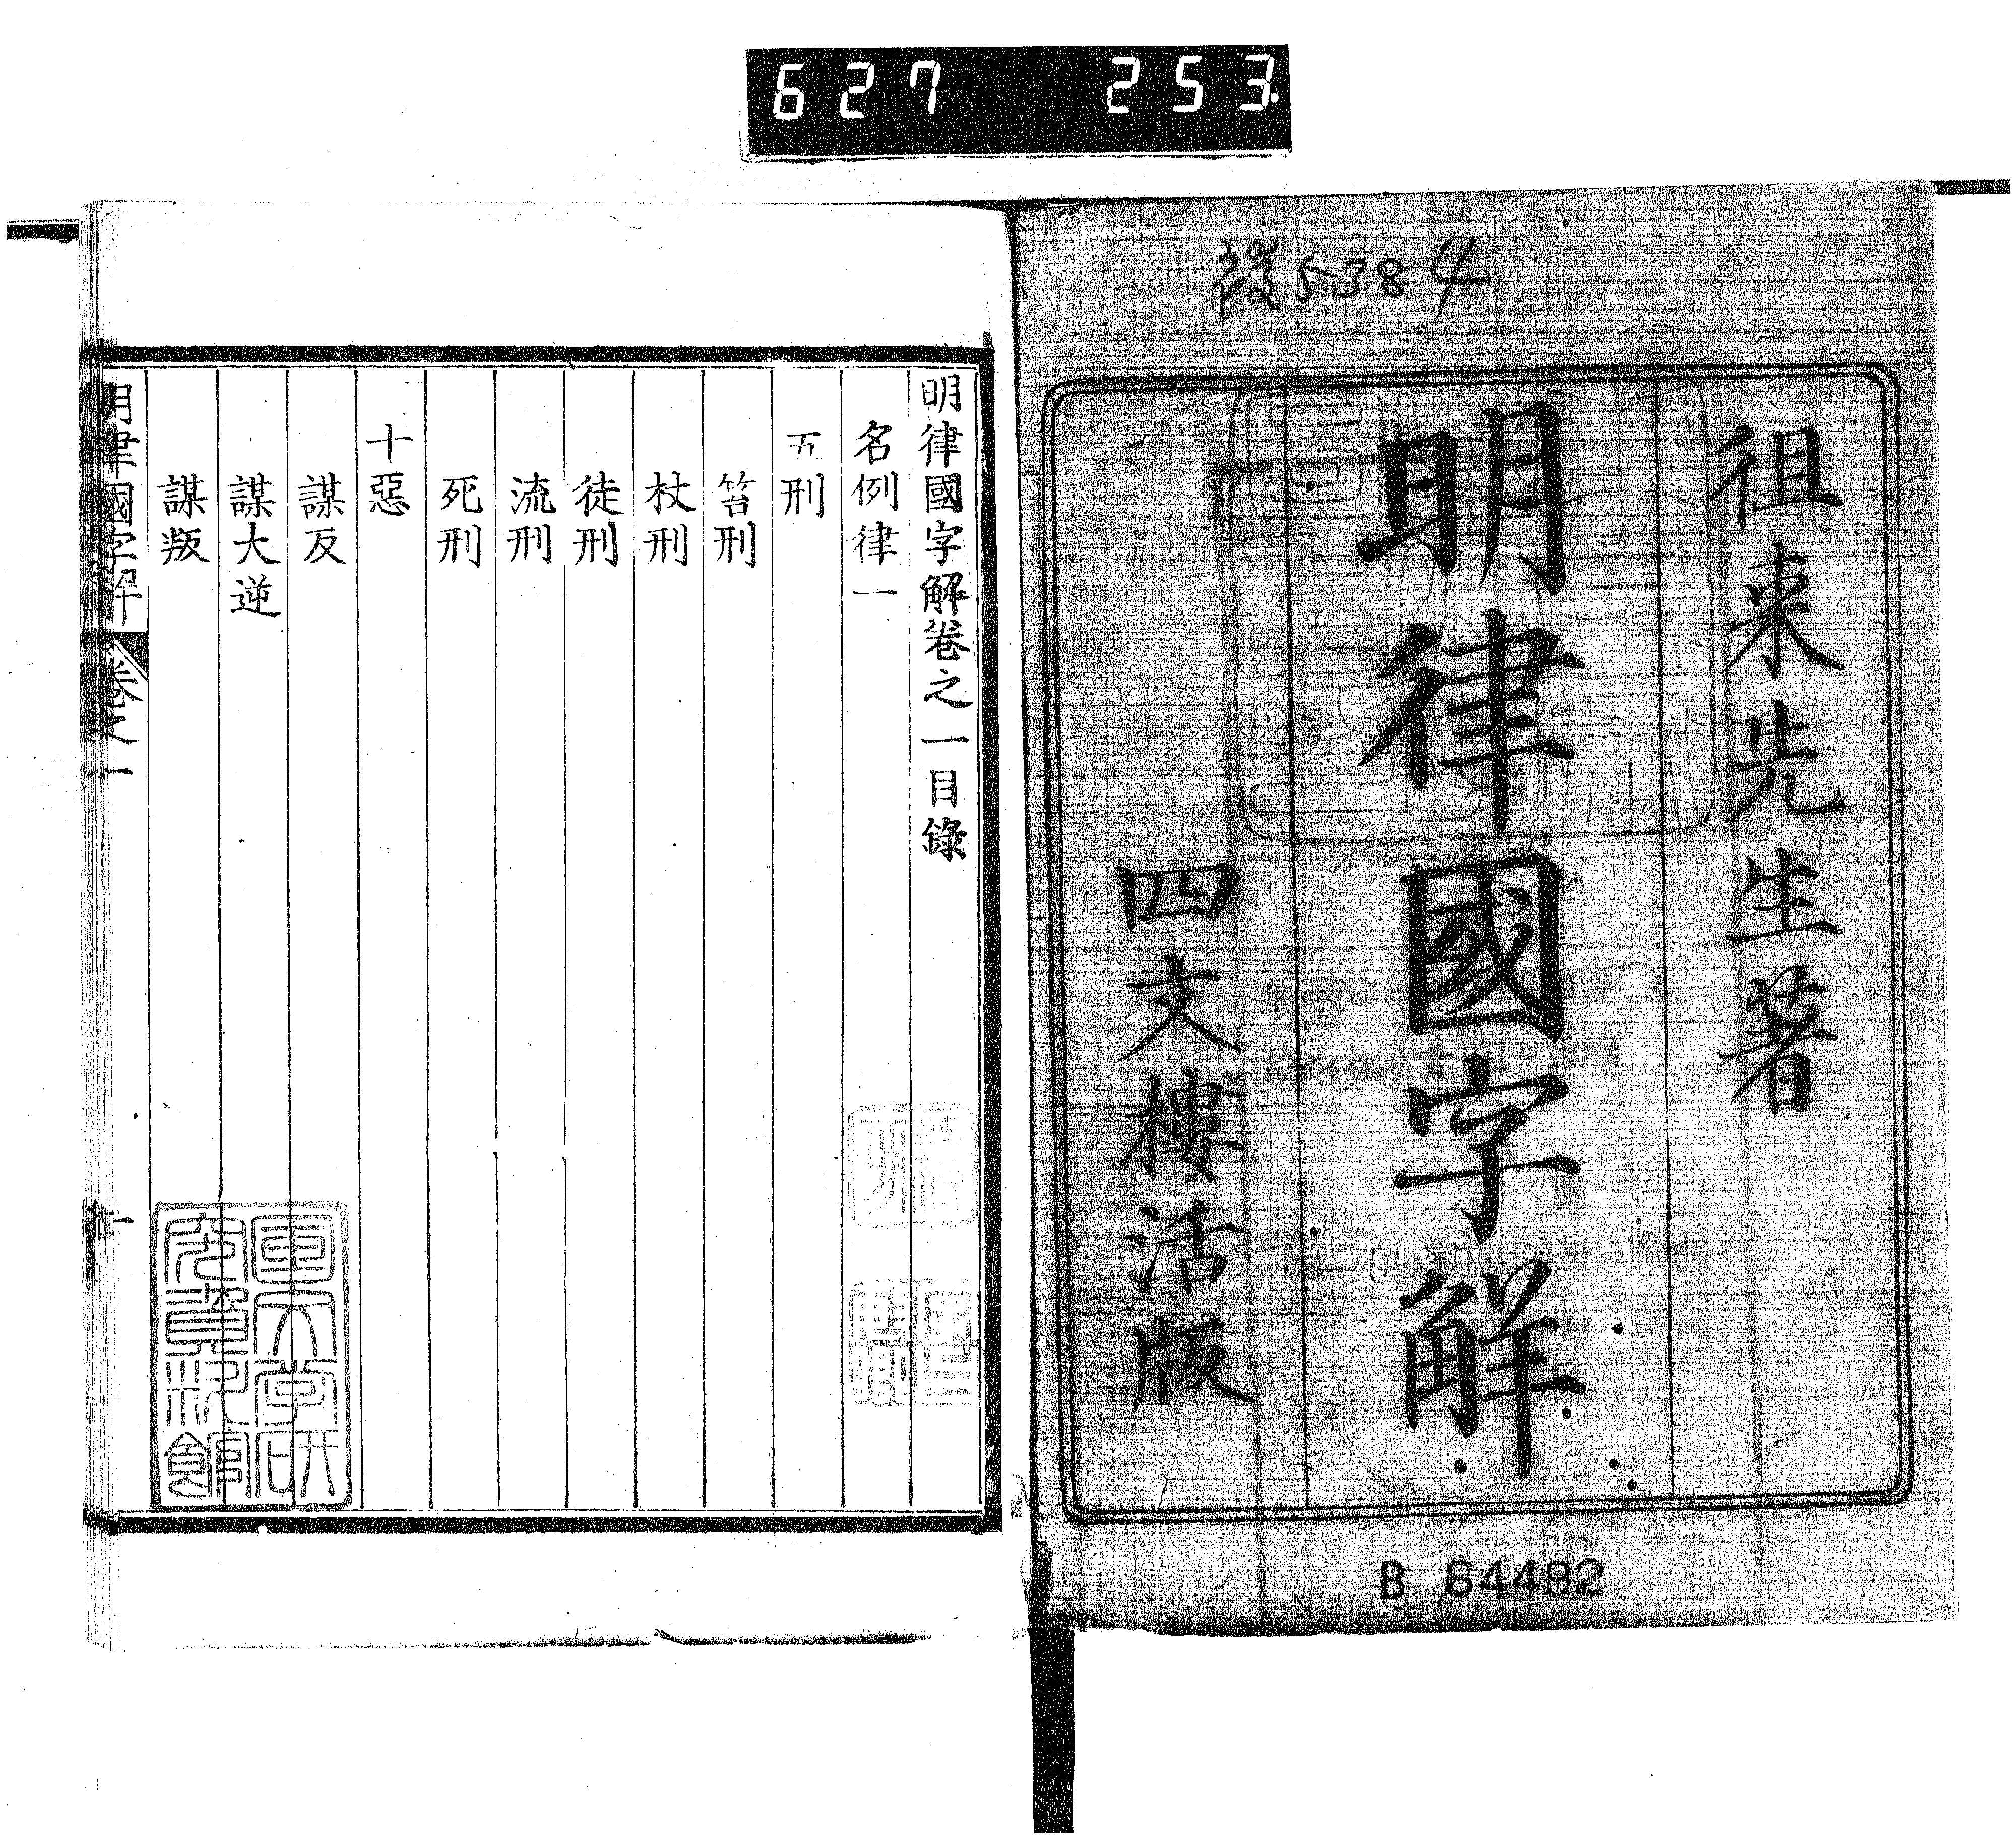 627 253
5384
徂来先生著
明律國字解
四文樓活版
B 64492
明律國字解卷之一目錄
名例律一
五刑
笞刑
杖刑
徒刑
流刑
死刑
十惡
謀反
謀大逆
謀叛
明律國字解 卷之一
一